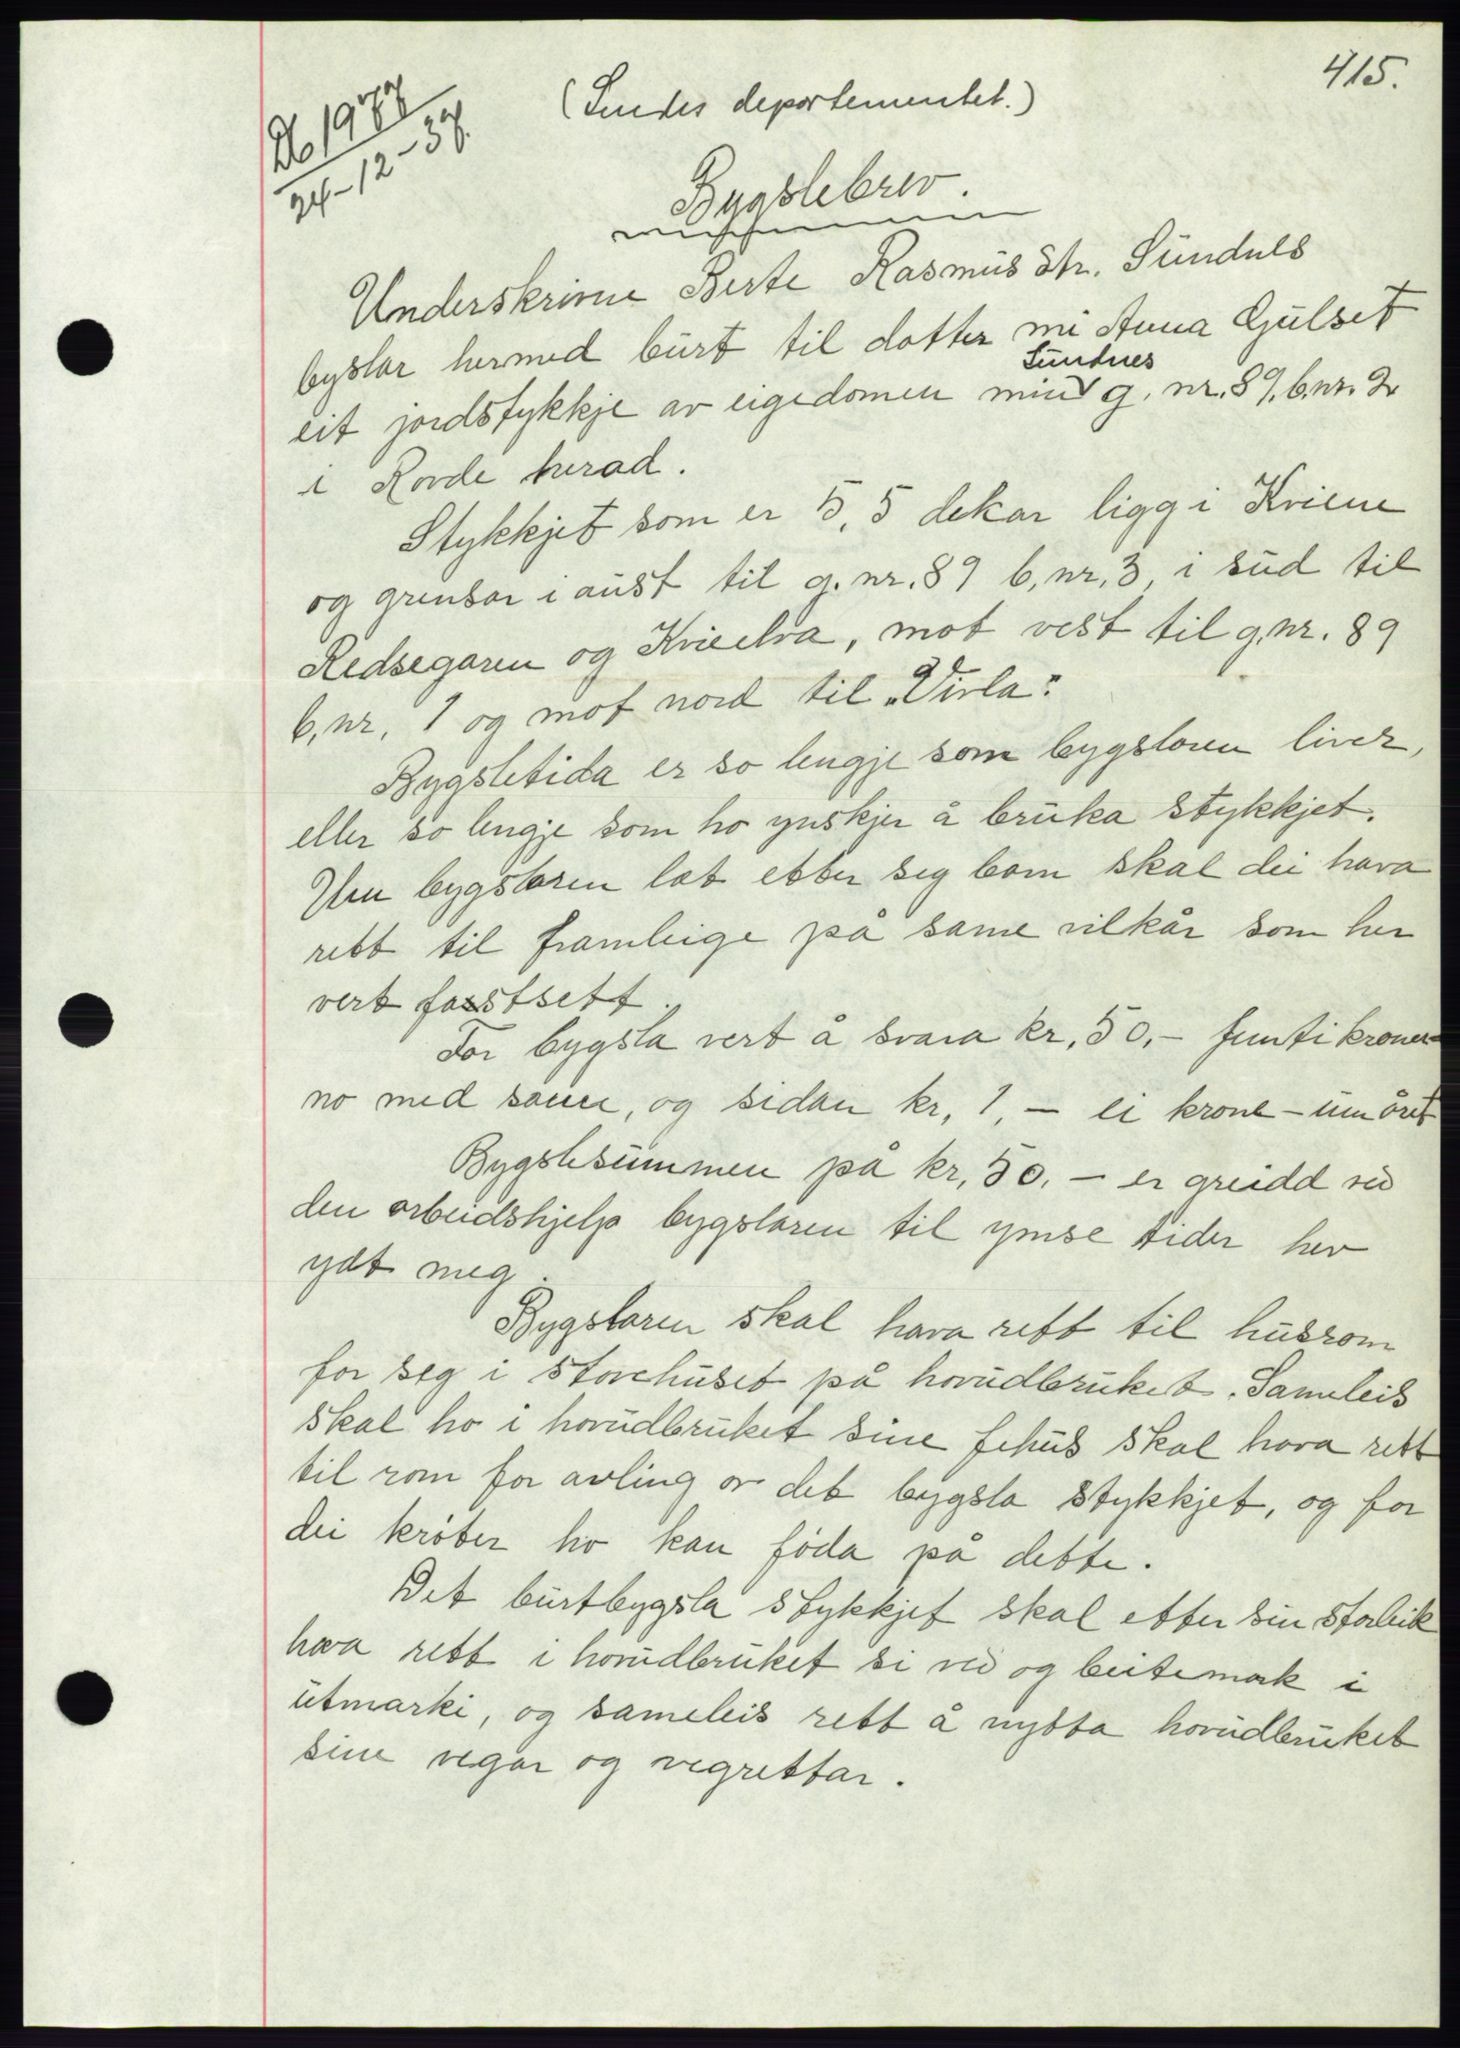 415.
Db 1977
24-12-37.
(Sendes departementet.)
Bygslebrev.
Underskrivne Berte Rasmus dtr. Sundnes
byslar hermed burt til dotter mi Anna Gjulset
Sundnes
eit jordstykkje av eigedomen min g. nr. 89, b.nr. 2
i Rovde herad.
Stykkjet som er 5,5 dekar ligg i Kviene
og grensar i aust til g. nr. 89 b. nr. 3, i sud til
Redsegaren og Kvieelva, mot vest til g.nr. 89
b. nr. 1 og mot nord til "Virla".
Bygsletida er so lengje som bygslaren liver,
eller so lengje som ho ynskjer å bruka stykkjet.
Um bygslaren lat etter seg born skal dei hava
rett til framleige på same vilkår som her
vert fastsett.
For bygsla vert å svara kr. 50,- femti kroner-
no med same, og sidan kr. 1,- ei krone - um året
Bygslesummen på kr. 50.- er greidd ved
den arbeidshjelp bygslaren til ymse tider hev
ydt meg.
Bygslaren skal hava rett til husrom
for seg i stovehuset på hovudbruket. Sameleis
skal ho i hovudbruket sine fehus skal hava rett
til rom for avling av det bygsla stykkjet, og for
dei krøter ho kan føda på dette.
Det burtbygsla stykkjet skal etter sin storleik
hava rett i hovudbruket si ved og beitemark i
utmarki, og sameleis rett å nytta hovudbruket
sine vegar og vegrettar.